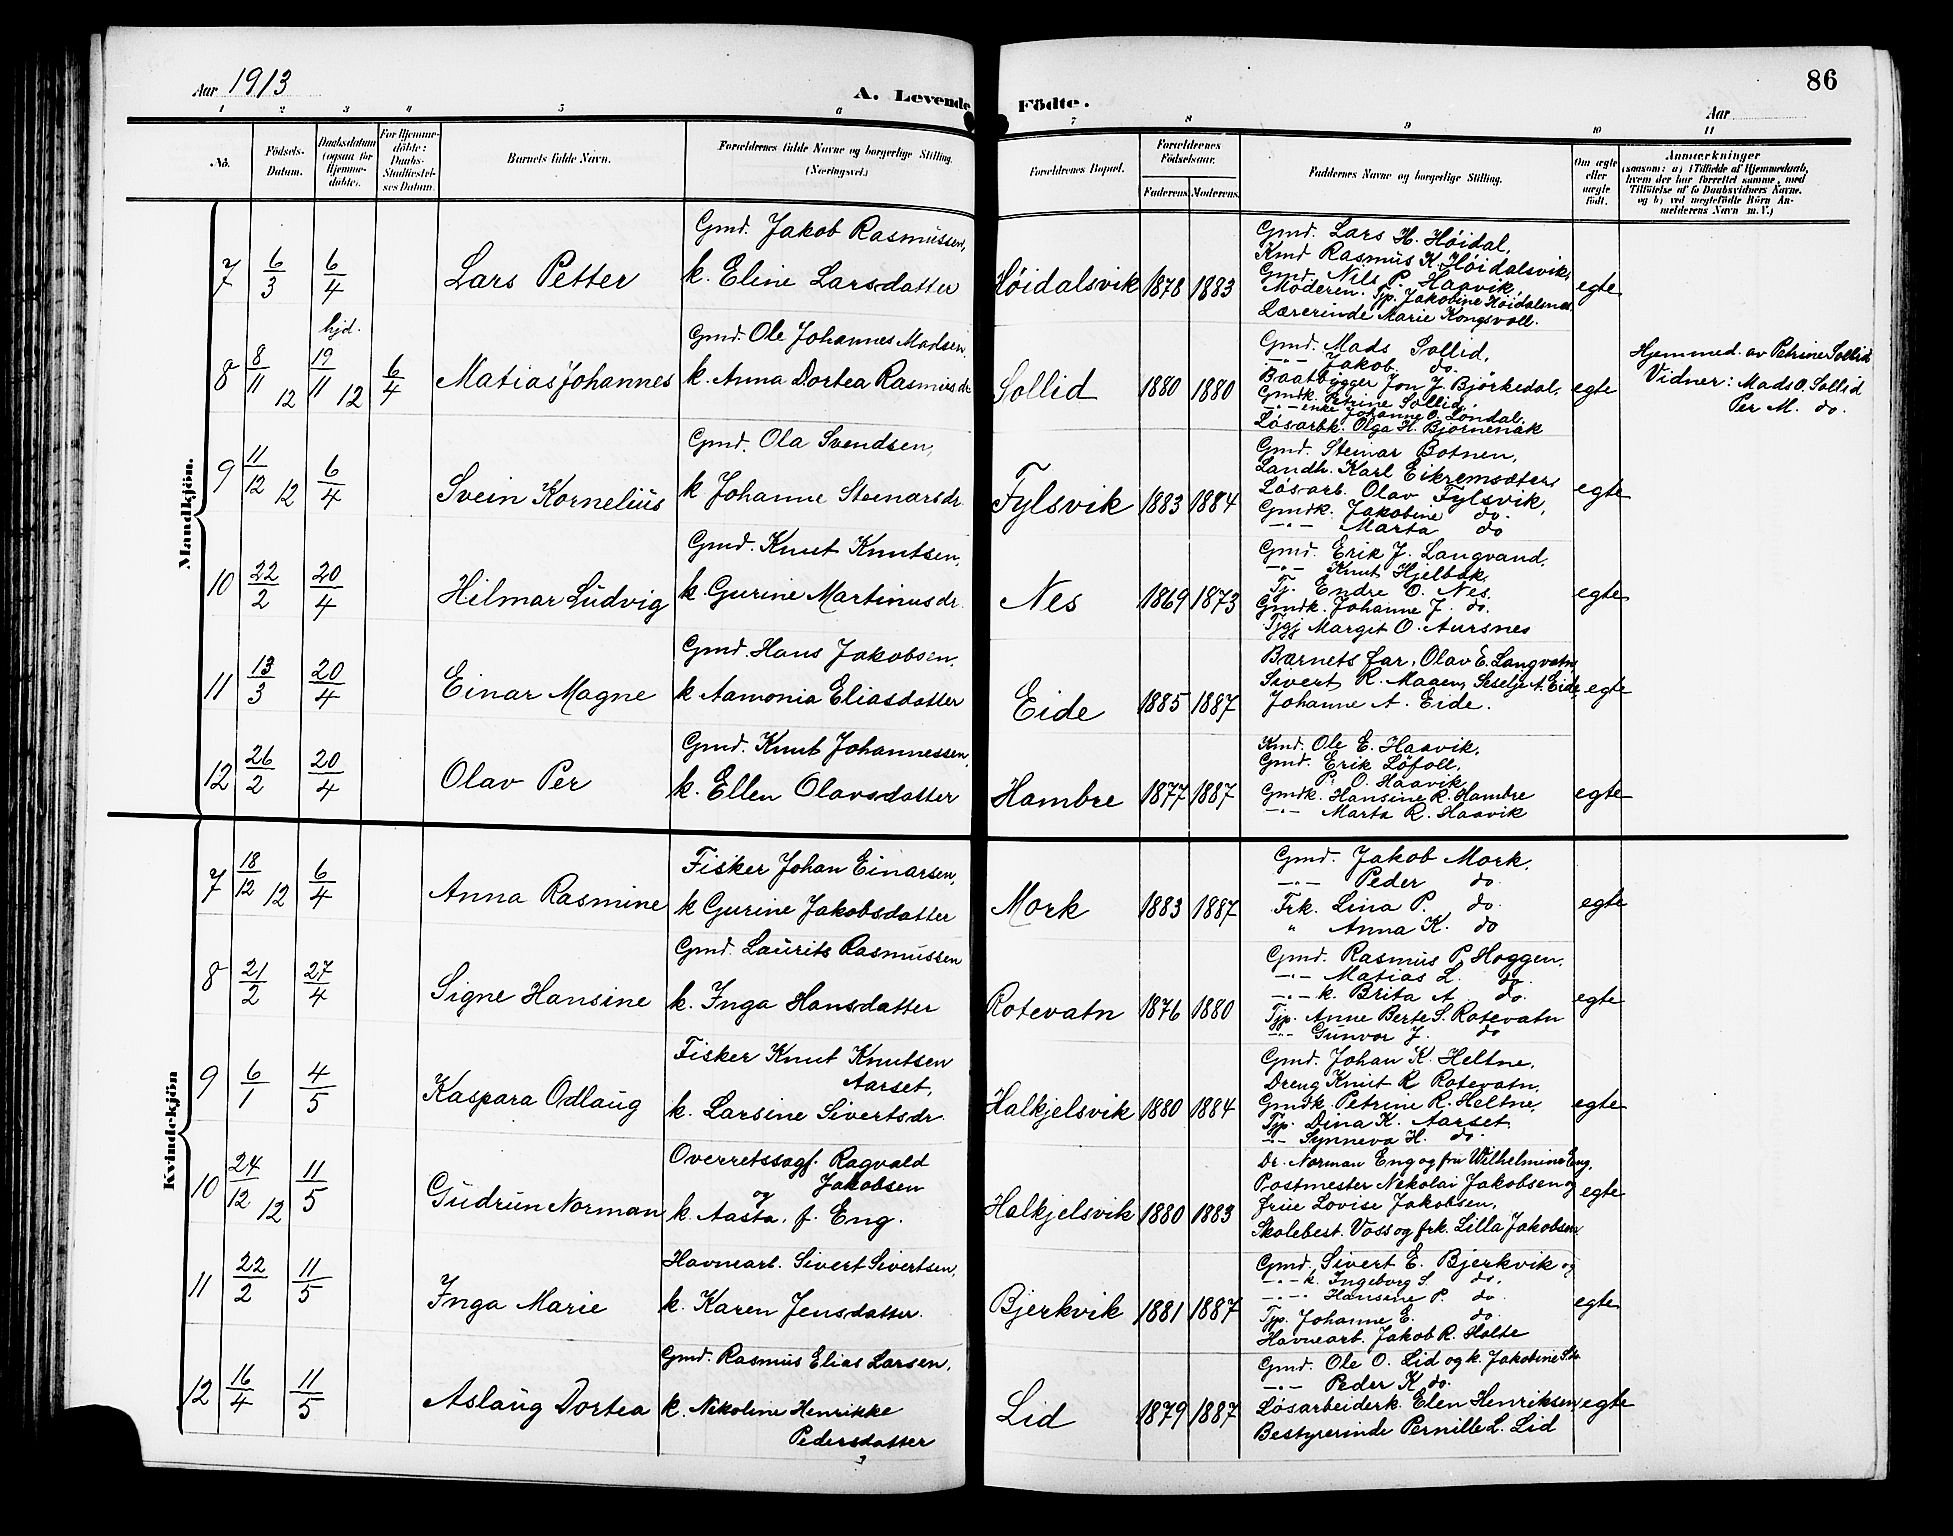 Aar 1913
A. Levende Födte.
Aar
86
1 2 3 4 5 6 7 8 9 10 11
No.
Födsels-Datum.
Daabsdatum (ogsaa for Hjemme-döbte).
For Hjemme-döbte: Daabs-Stadfæstel-ses Datum.
Barnets fulde Navn.
Forældrenes fulde Navne og borgerlige Stilling. (Næringsvei.)
Forældrenes Bopæl.
Forældrenes Födselsaar.
Faderens Moderens
Faddernes Navne og borgerlige Stilling.
Om ægte eller uægte födt.
Anmærkninger
(saasom: a) i Tilfælde af Hjemmedaab, hvem der har forrettet samme, med Tilföielse af to Daabsvidners Navne, og b) ved uægtefödte Börn An-melderens Navn m. V.)
Mandkjön.
7 6/3 6/4 Lars Petter
Gmd. Jakob Rasmussen,
k. Eline Larsdatter
Höidalsvik 1878 1883
Gmd. Lars H. Höidal,
Kmd Rasmus K. Höidalsvik,
Gmd. Nils P. Haavik,
Moderen. Tjp. Jakobine Höidalsnes.
Lærerinde Marie Kongsvoll.
egte
8 8/11 12 hjd. 19/11 12 6/4 Matias Johannes
Gmd. Ole Johannes Madsen,
k. Anna Dortea Rasmusdr
Sollid 1880 1880
Gmd. Mads Sollid,
-"- Jakob do.
Baatbygger Jon J. Björkedal,
Gmdk. Petrine Sollid,
-"- enke Johanne O. Löndal,
Lösarbk. Olga H. Björnenak
egte
Hjemmed. av Petrine Sollid
Vidner: Mads O. Sollid
Per M. do.
9 11/12 12 6/4 Svein Kornelius
Gmd. Ola Svendsen,
k Johanne Steinarsdr.
Fylsvik 1883 1884
Gmd. Steinar Botnen,
Landh. Karl Eikremsæter,
Lösarb. Olav Fylsvik,
Gmdk. Jakobine do.
-"- Marta do
egte
10 22/2 20/4 Hilmar Ludvig
Gmd. Knut Knutsen,
k. Gurine Martinusdr.
Nes 1869 1873
Gmd. Erik J. Langvand,
-"- Knut Hjelbak,
Tj. Endre O. Nes,
Gmdk. Johanne J. do.
Tjgj Margit O. Aursnes
egte
11 13/3 20/4 Einar Magne
Gmd. Hans Jakobsen,
k Aamonia Eliasdatter
Eide 1885 1887
Barnets far, Olav E. Langvatn,
Sivert R. Maaen, Seselje A. Eide,
Johanne A. Eide.
egte
12 26/2 20/4 Olav Per
Gmd. Knut Johannessen,
k. Ellen Olavsdatter
Hambre 1877 1887
Kmd. Ole E. Haavik,
Gmd. Erik Löfoll,
P. O. Haavik,
Gmdk. Hansine R. Hambre
-"- Marta R. Haavik
egte
Kvindekjön
7 18/12 12 6/4 Anna Rasmine
Fisker Johan Einarsen,
k Gurine Jakobsdatter
Mork 1883 1887
Gmd. Jakob Mork,
-"- Peder do.
Frk. Lina P. do.
" Anna K. do
egte
8 21/2 27/4 Signe Hansine
Gmd. Laurits Rasmussen
k. Inga Hansdatter
Rotevatn 1876 1880
Gmd. Rasmus P. Hoggen,
-"- Matias L. do.
-"- k. Brita A. do.
Tjp. Anne Berte S. Rotevatn
-"- Gunvor J. do
egte
9 6/1 4/5 Kaspara Odlaug
Fisker Knut Knutsen
Aarset,
k. Larsine Sivertsdr.
Halkjelsvik 1880 1884
Gmd. Johan K. Heltne,
Dreng Knut R. Rotevatn,
Gmdk. Petrine R. Heltne,
Tjp. Dina K. Aarset,
-"- Synneva H. do.
egte
10 24/12 12 11/5 Gudrun Norman
Overretssagf. Ragvald
Jakobsen
og
k. Aasta, f. Eng.
Halkjelsvik 1880 1883
Dr. Norman Eng og fru Wilhelmine Eng,
Postmester Nekolai Jakobsen og
frue Lovise Jakobsen,
Skolebest. Voss og frk. Lilla Jakobsen.
egte
11 22/2 11/5 Inga Marie
Havnearb. Sivert Sivertsen,
k. Karen Jensdatter.
Bjerkvik 1881 1887
Gmd. Sivert E. Bjerkvik og
-"- k. Ingeborg S. do.
-"- " Hansine P. do.
Tjp. Johanne E. do
Havnearb. Jakob R. Holte
egte
12 16/4 11/5 Aslaug Dortea
Gmd. Rasmus Elias Larsen,
k. Nikoline Henrikke
Pedersdatter
Lid 1879 1887
Gmd. Ole O. Lid og k. Jakobine S. do.
-"- Peder K do.
Lösarbeiderk. Elen Henriksen
Bestyrerinde Pernille L. Lid
egte